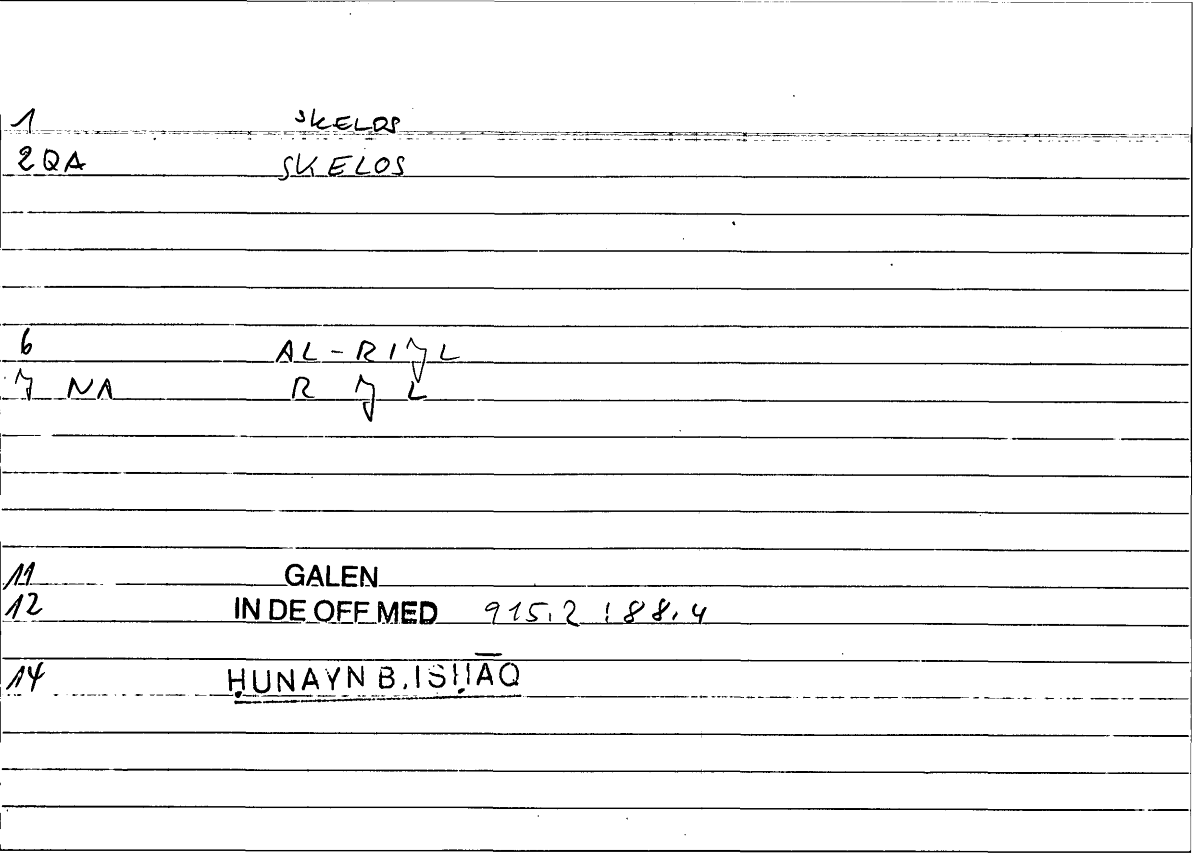 1 SKELOS
2 QA SKELOS
6 AL-RIJL
7 NA R J L
11 GALEN
12 IN DE OFF MED 915.2 : 88.4
14 ḤUNAYN B. ISḤĀQ